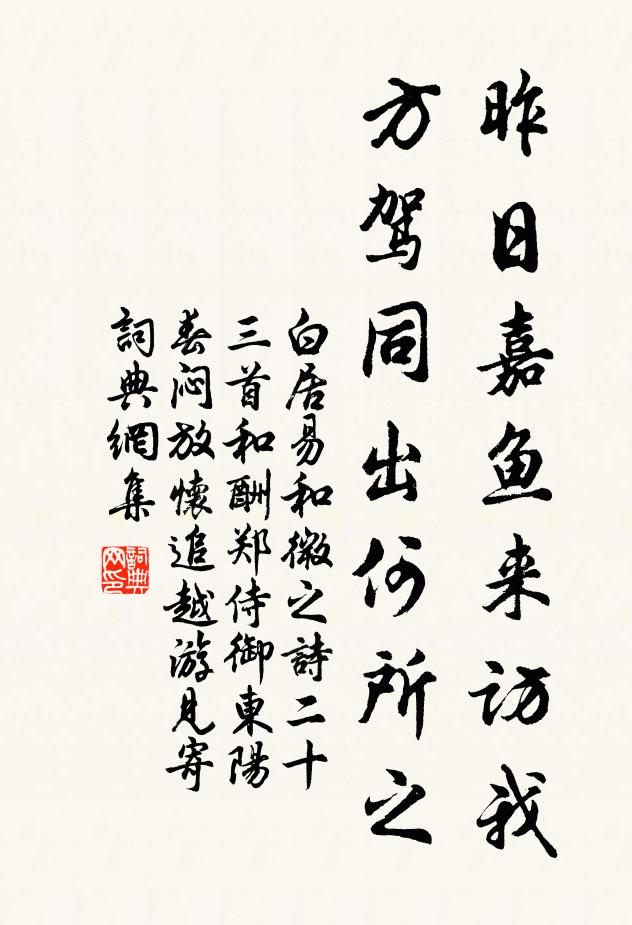 昨日嘉鱼来访我
方驾同出何所之
白居易和微之詩二十
三首和酬郑侍御東陽
春闷放懷追越游見寄
詞典網集
詞典网印